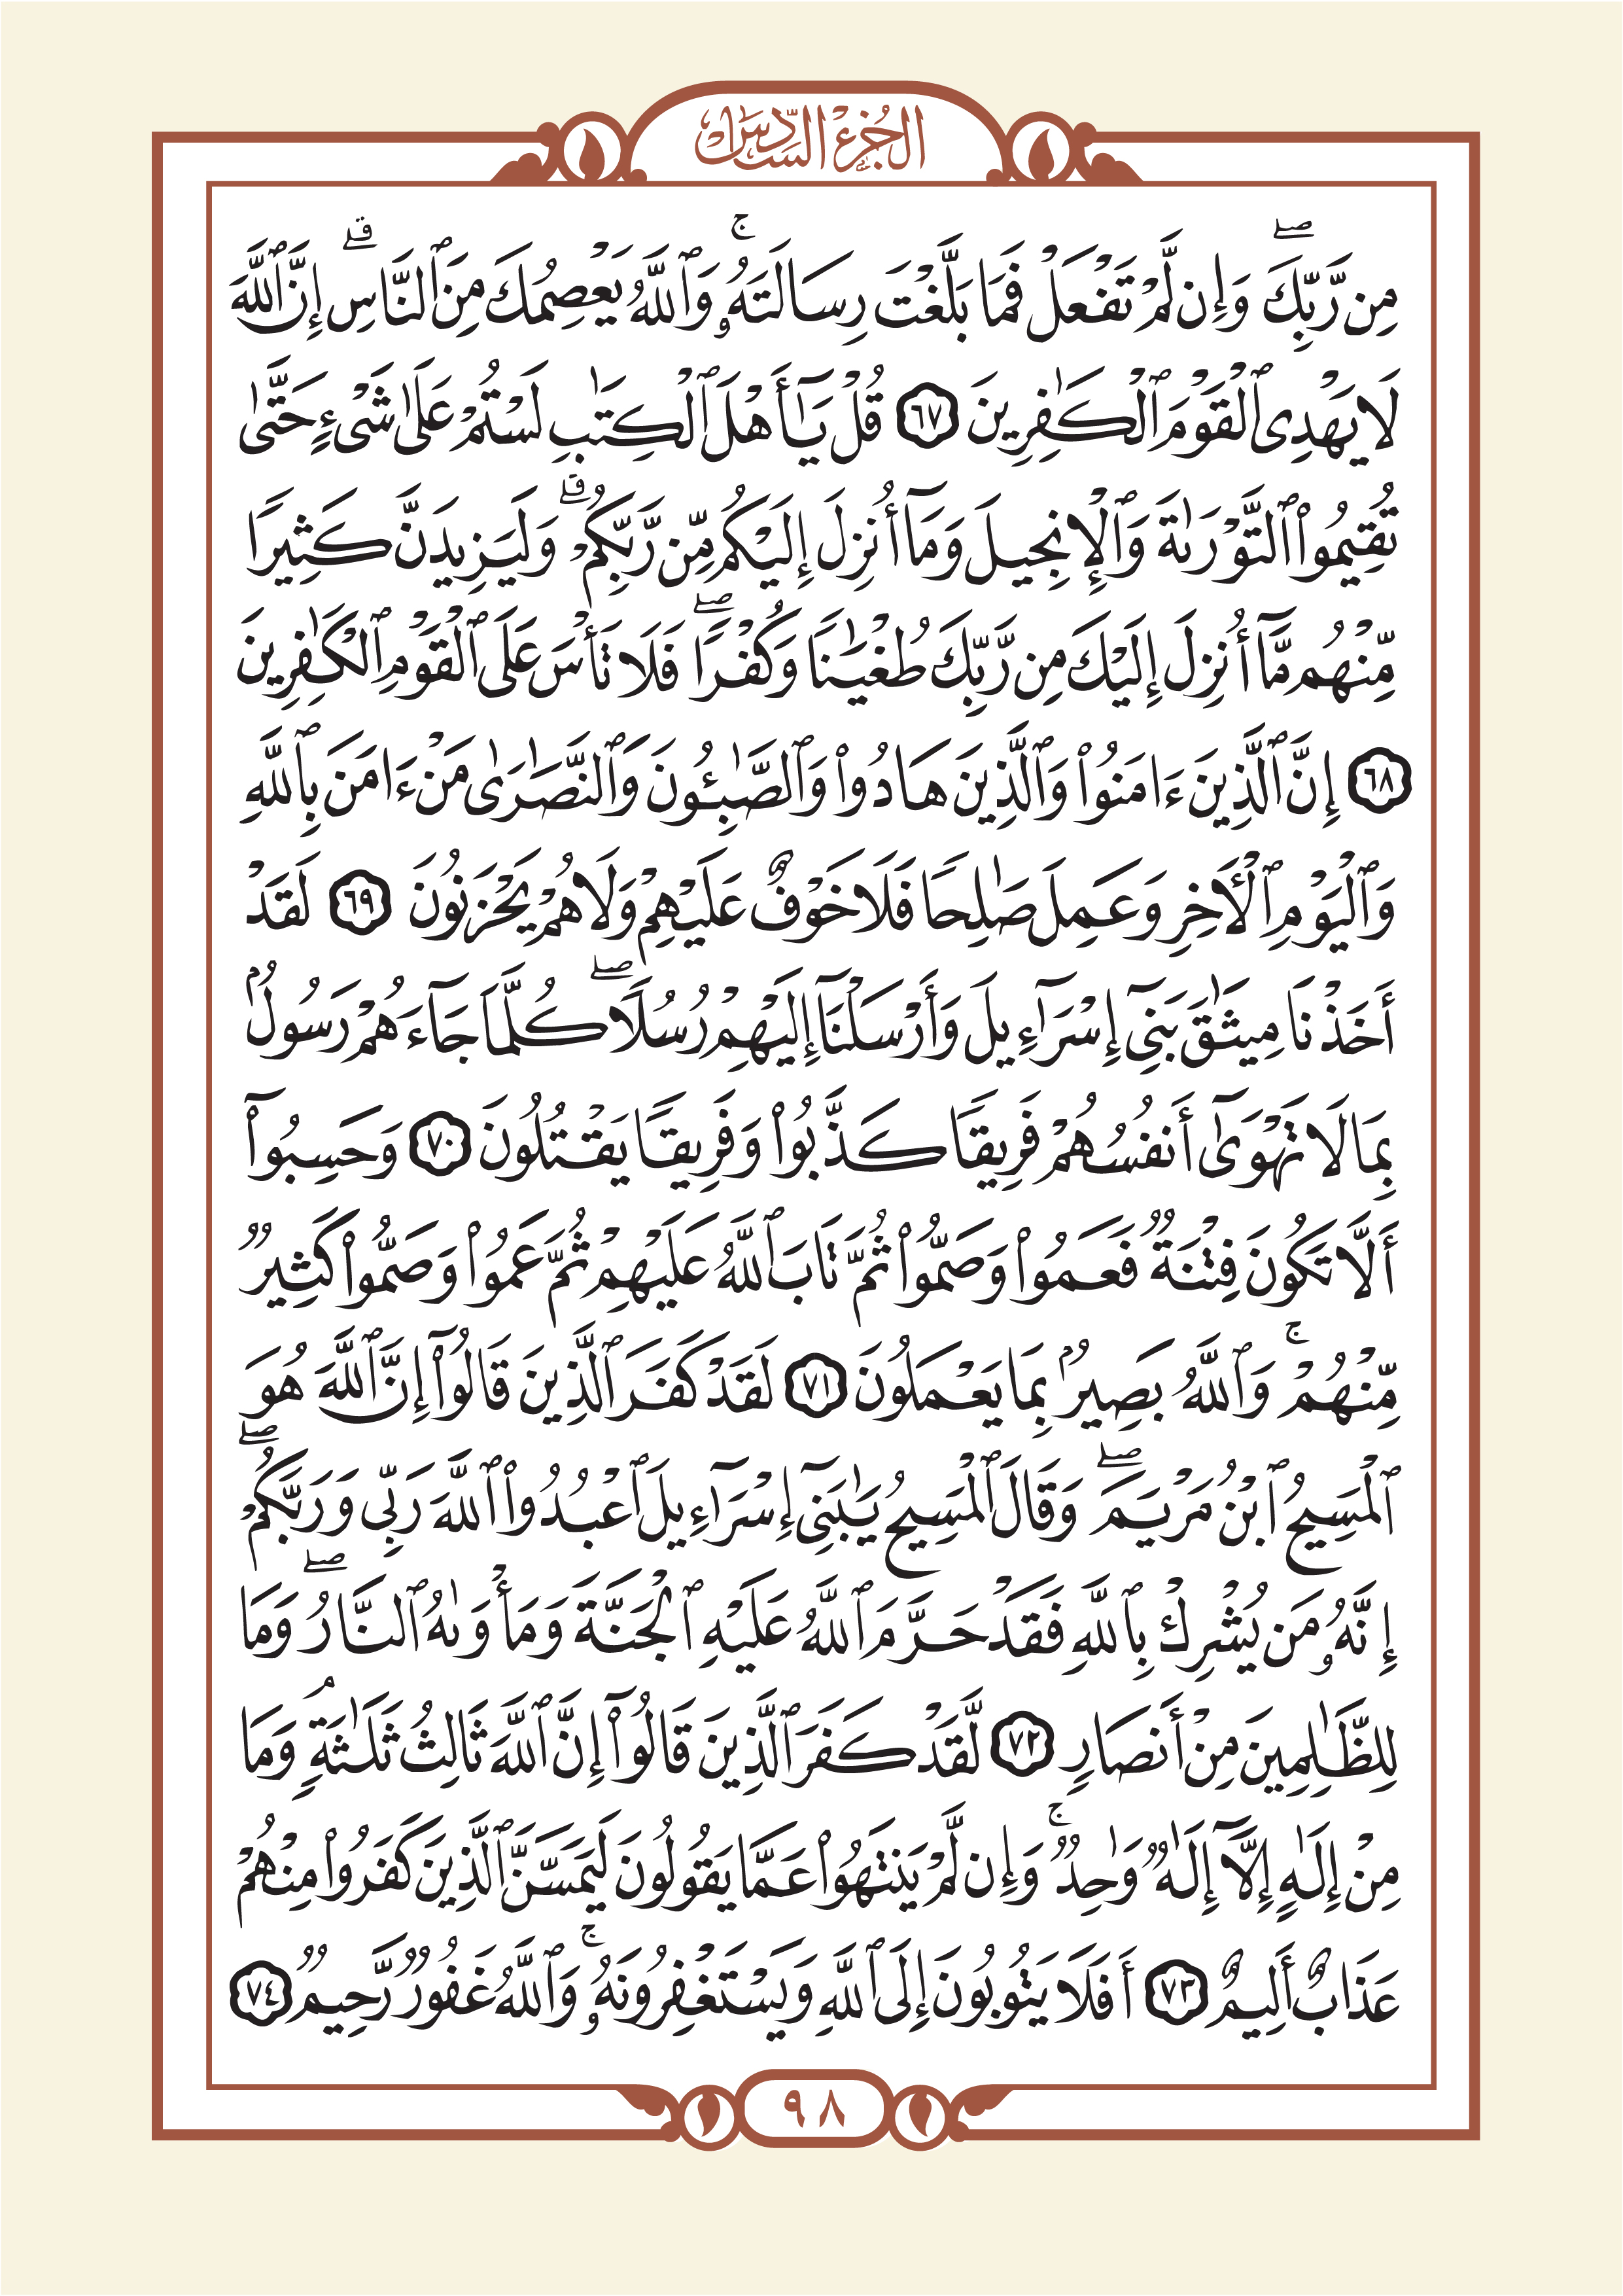 الجُزْءُ السَّادِسُ
مِن رَّبِّكَۖ وَإِن لَّمْ تَفْعَلْ فَمَا بَلَّغْتَ رِسَالَتَهُۥۚ وَٱللَّهُ يَعْصِمُكَ مِنَ ٱلنَّاسِۗ إِنَّ ٱللَّهَ
لَا يَهْدِى ٱلْقَوْمَ ٱلْكَٰفِرِينَ ٦٧ قُلْ يَٰٓأَهْلَ ٱلْكِتَٰبِ لَسْتُمْ عَلَىٰ شَىْءٍ حَتَّىٰ
تُقِيمُوا۟ ٱلتَّوْرَىٰةَ وَٱلْإِنجِيلَ وَمَآ أُنزِلَ إِلَيْكُم مِّن رَّبِّكُمْۗ وَلَيَزِيدَنَّ كَثِيرًا
مِّنْهُم مَّآ أُنزِلَ إِلَيْكَ مِن رَّبِّكَ طُغْيَٰنًا وَكُفْرًاۖ فَلَا تَأْسَ عَلَى ٱلْقَوْمِ ٱلْكَٰفِرِينَ
٦٨ إِنَّ ٱلَّذِينَ ءَامَنُوا۟ وَٱلَّذِينَ هَادُوا۟ وَٱلصَّٰبِـُٔونَ وَٱلنَّصَٰرَىٰ مَنْ ءَامَنَ بِٱللَّهِ
وَٱلْيَوْمِ ٱلْأٓخِرِ وَعَمِلَ صَٰلِحًا فَلَا خَوْفٌ عَلَيْهِمْ وَلَا هُمْ يَحْزَنُونَ ٦٩ لَقَدْ
أَخَذْنَا مِيثَٰقَ بَنِىٓ إِسْرَٰٓءِيلَ وَأَرْسَلْنَآ إِلَيْهِمْ رُسُلًاۖ كُلَّمَا جَآءَهُمْ رَسُولٌۢ
بِمَا لَا تَهْوَىٰٓ أَنفُسُهُمْ فَرِيقًا كَذَّبُوا۟ وَفَرِيقًا يَقْتُلُونَ ٧٠ وَحَسِبُوٓا۟
أَلَّا تَكُونَ فِتْنَةٌ فَعَمُوا۟ وَصَمُّوا۟ ثُمَّ تَابَ ٱللَّهُ عَلَيْهِمْ ثُمَّ عَمُوا۟ وَصَمُّوا۟ كَثِيرٌ
مِّنْهُمْۚ وَٱللَّهُ بَصِيرٌۢ بِمَا يَعْمَلُونَ ٧١ لَقَدْ كَفَرَ ٱلَّذِينَ قَالُوٓا۟ إِنَّ ٱللَّهَ هُوَ
ٱلْمَسِيحُ ٱبْنُ مَرْيَمَۖ وَقَالَ ٱلْمَسِيحُ يَٰبَنِىٓ إِسْرَٰٓءِيلَ ٱعْبُدُوا۟ ٱللَّهَ رَبِّى وَرَبَّكُمْۖ
إِنَّهُۥ مَن يُشْرِكْ بِٱللَّهِ فَقَدْ حَرَّمَ ٱللَّهُ عَلَيْهِ ٱلْجَنَّةَ وَمَأْوَىٰهُ ٱلنَّارُۖ وَمَا
لِلظَّٰلِمِينَ مِنْ أَنصَارٍ ٧٢ لَّقَدْ كَفَرَ ٱلَّذِينَ قَالُوٓا۟ إِنَّ ٱللَّهَ ثَالِثُ ثَلَٰثَةٍۘ وَمَا
مِنْ إِلَٰهٍ إِلَّآ إِلَٰهٌ وَٰحِدٌۚ وَإِن لَّمْ يَنتَهُوا۟ عَمَّا يَقُولُونَ لَيَمَسَّنَّ ٱلَّذِينَ كَفَرُوا۟ مِنْهُمْ
عَذَابٌ أَلِيمٌ ٧٣ أَفَلَا يَتُوبُونَ إِلَى ٱللَّهِ وَيَسْتَغْفِرُونَهُۥۚ وَٱللَّهُ غَفُورٌ رَّحِيمٌ ٧٤
٩٨